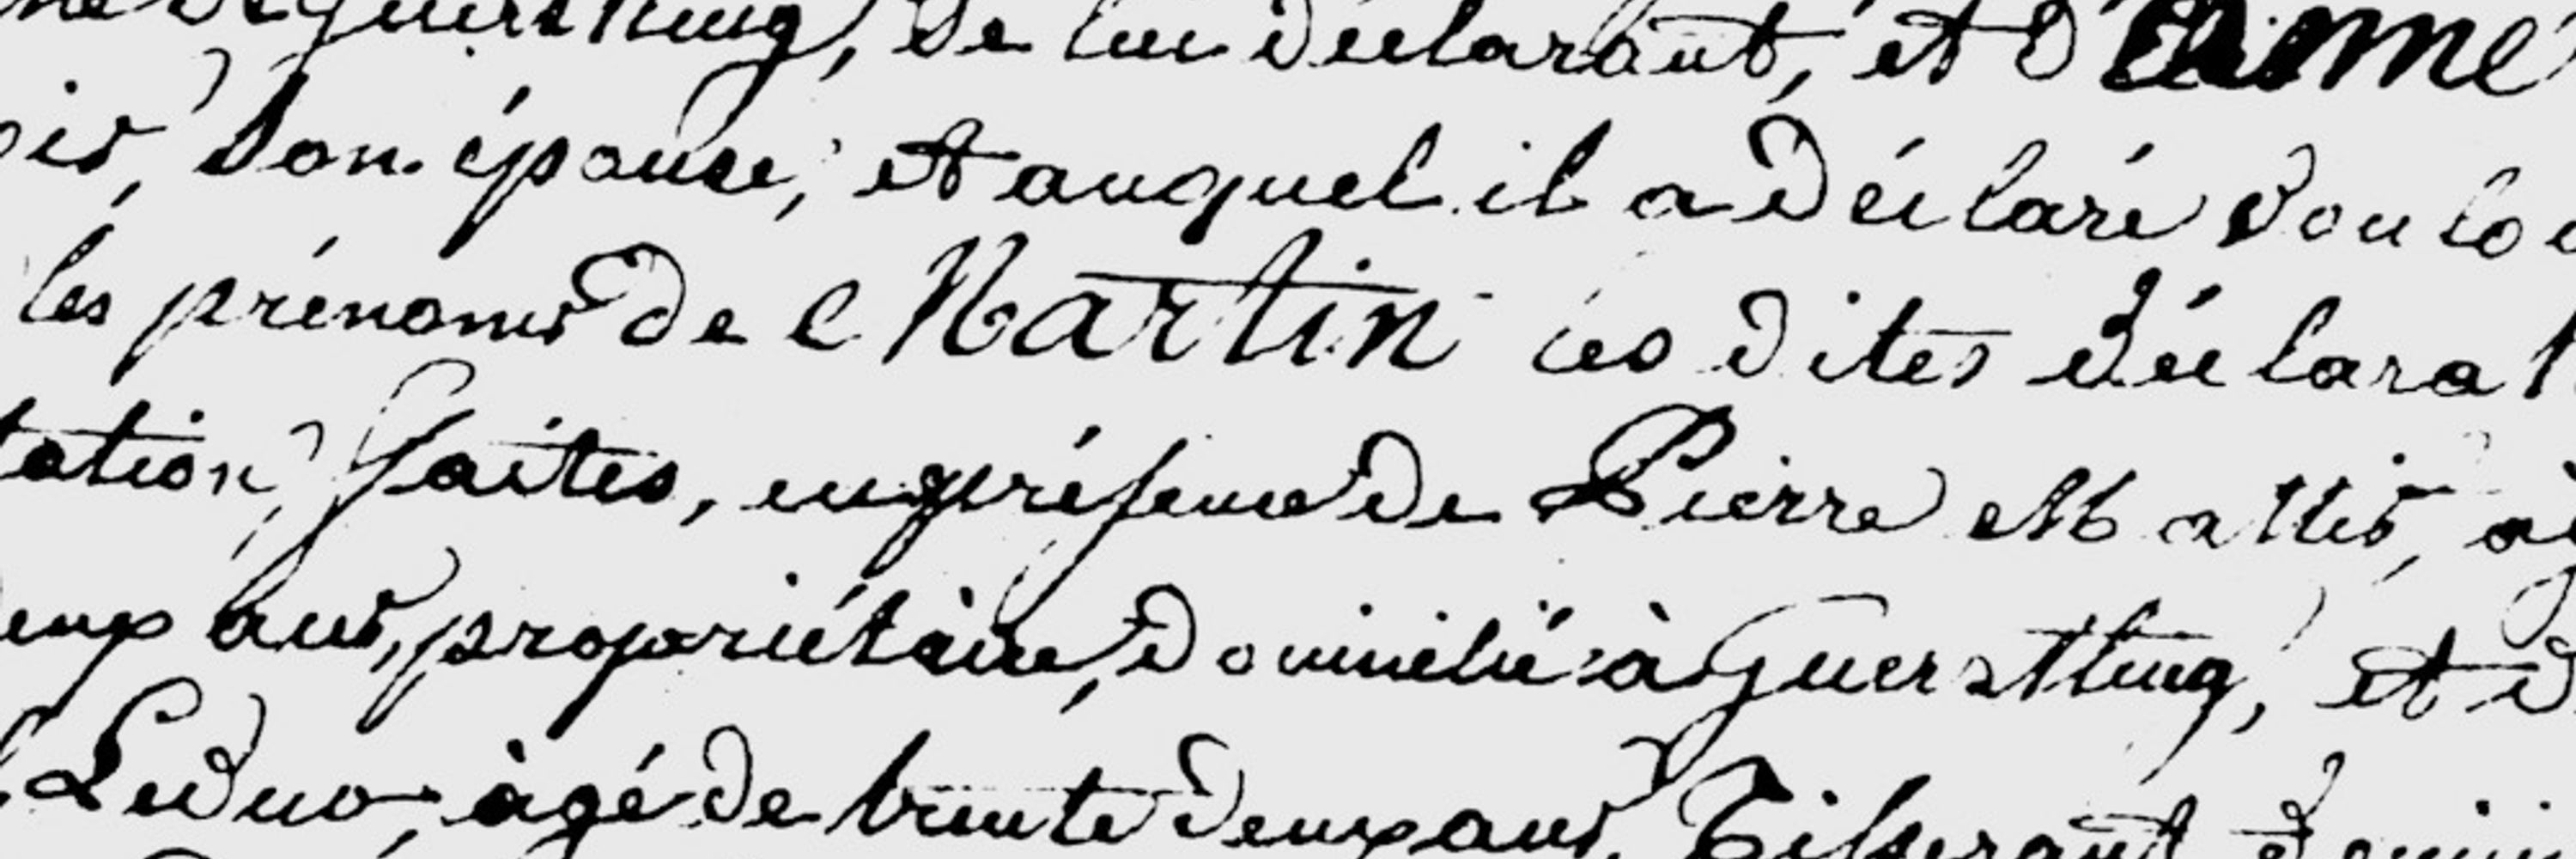 de Guerstling, de lui déclarant, et d'
son épouse, et auquel il a déclaré voulo
les prénoms de Martin ces dites déclarat
tation, faites, en présence de Pierre Mattis, ag
deux ans, propriétaire, domicilié à Guerstling, et d
Leduc, agé de trente deux ans, Tisserant domi